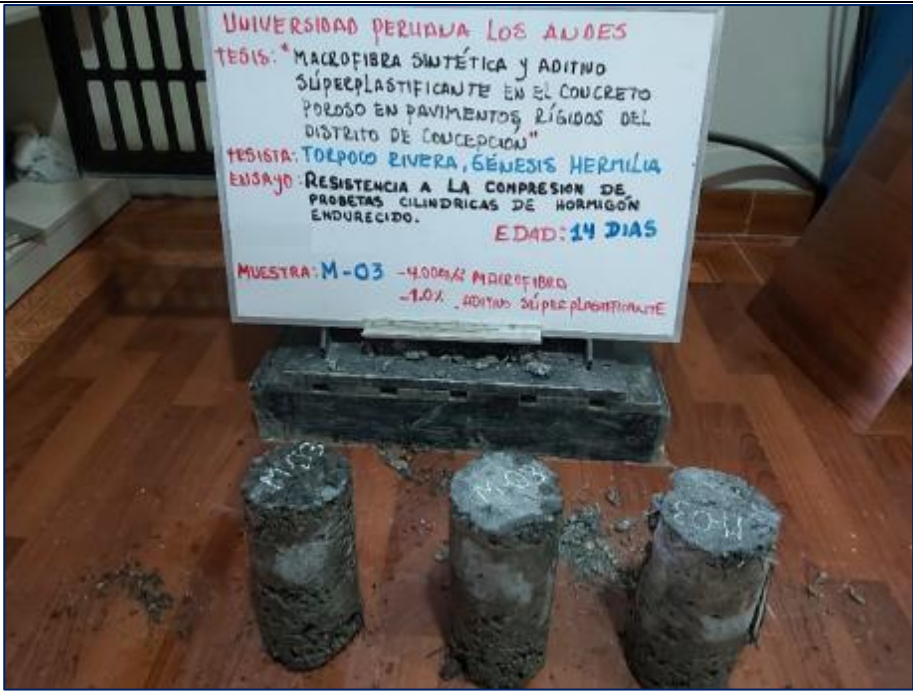 UNIVERSIDAD PERUANA LOS ANDES
TESIS: "MACROFIBRA SINTÉTICA y ADITIVO
SÚPERPLASTIFICANTE EN EL CONCRETO
POROSO EN PAVIMENTOS RÍGIDOS DEL
DISTRITO DE CONCEPCIÓN"
TESISTA: TORPOCO RIVERA, GÉNESIS HERMILIA
ENSAYO: RESISTENCIA A LA COMPRESION DE
PROBETAS CILINDRICAS DE HORMIGÓN
ENDURECIDO.
EDAD: 14 DIAS
MUESTRA: M-03 - MACROFIBRA
-1.0% ADITIVO SÚPERPLASTIFICANTE
M-03
M-03
M-03